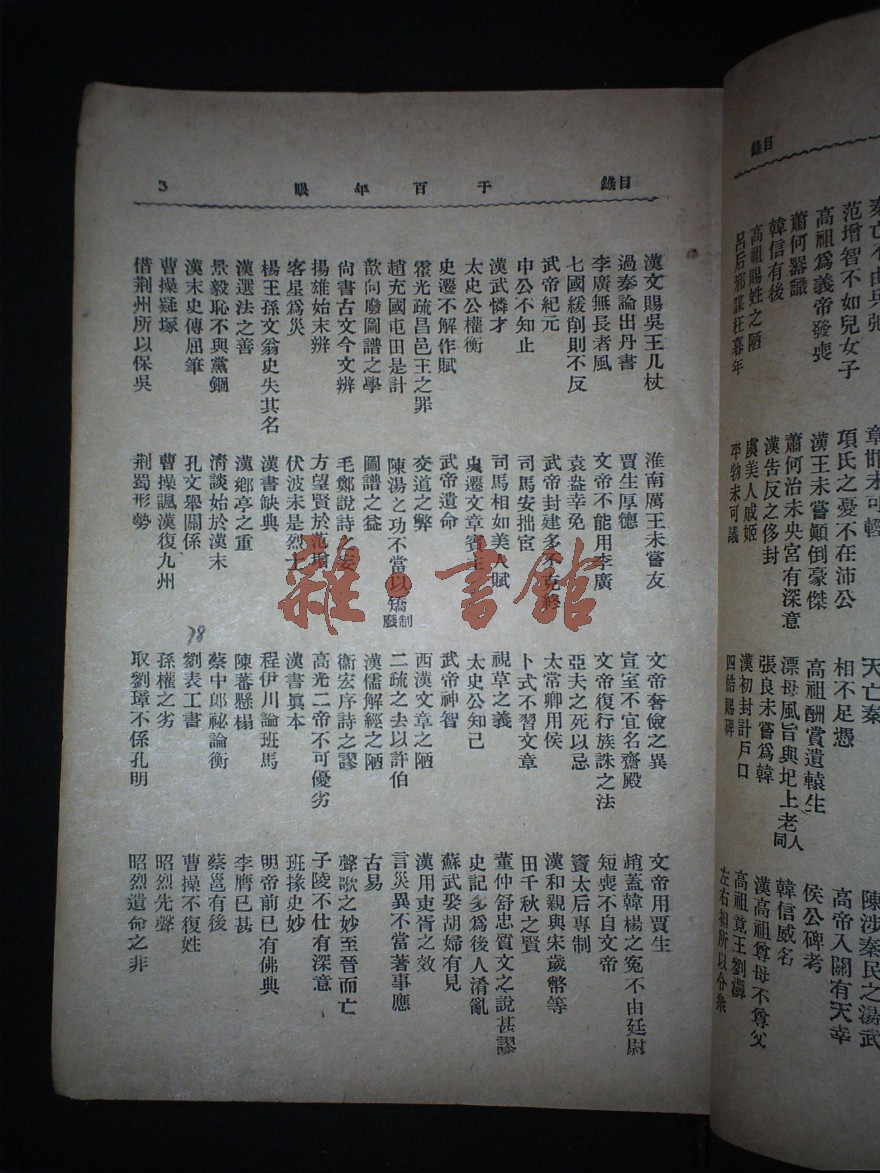 目錄
秦亡不由兵弛 章邯未可輕 天亡秦 陳涉秦民之湯武
范增智不如兒女子 項氏之憂不在沛公 相不足憑 高帝入關有天幸
高祖爲義帝發喪 漢王未嘗顚倒豪傑 高祖酬賞遺轅生 侯公碑考
蕭何器識 蕭何治未央宮有深意 漂母風旨與圯上老人同 韓信威名
韓信有後 漢吿反之侈封 張良未嘗爲韓 漢高祖尊母不尊父
高祖賜姓之陋 虞美人戚姬 漢初封計戶口 高祖竟王劉濞
呂后邪謀在暮年 平勃未可議 四皓賜碑 左右相所以令衆
目錄 千百年眼 3
漢文賜吳王几杖 淮南厲王未嘗友 文帝奢儉之異 文帝用賈生
過秦論出丹書 賈生厚德 宣室不宜名齋殿 趙蓋韓楊之冤不由廷尉
李廣無長者風 文帝不能用李廣 文帝復行族誅之法 短喪不自文帝
七國緩削則不反 袁盎幸免 亞夫之死以忌 竇太后專制
武帝紀元 武帝封建多不克終 太常卿用侯 漢和親與宋歲幣等
申公不知止 司馬安拙宦 卜式不習文章 田千秋之賢
漢武憐才 司馬相如美人賦 視草之義 董仲舒忠質文之說甚謬
太史公權衡 史遷文章賓主 太史公知己 史記多爲後人淆亂
史遷不解作賦 武帝遺命 武帝神智 蘇武娶胡婦有見
霍光疏昌邑王之罪 交道之弊 西漢文章之陋 漢用吏胥之效
趙充國屯田是計 陳湯之功不當以矯制廢 二疏之去以許伯 言災異不當著事應
歆向廢圖譜之學 圖譜之益 漢儒解經之陋 古易
尙書古文今文辨 毛鄭說詩之妄 衞宏序詩之謬 聲歌之妙至晉而亡
揚雄始末辨 方望賢於范增 高光二帝不可優劣 子陵不仕有深意
客星爲災 伏波未是烈士 漢書眞本 班掾史妙
楊王孫文翁史失其名 漢書缺典 程伊川論班馬 明帝前已有佛典
漢選法之善 漢鄉亭之重 陳蕃懸榻 李膺已甚
景毅恥不與黨錮 淸談始於漢末 蔡中郎祕論衡 蔡邕有後
漢末史傳屈筆 孔文舉關係 劉表工書 曹操不復姓
曹操疑塚 曹操諷漢復九州 孫權之劣 昭烈先聲
借荆州所以保吳 荆蜀形勢 取劉璋不係孔明 昭烈遺命之非
78
雜·書館